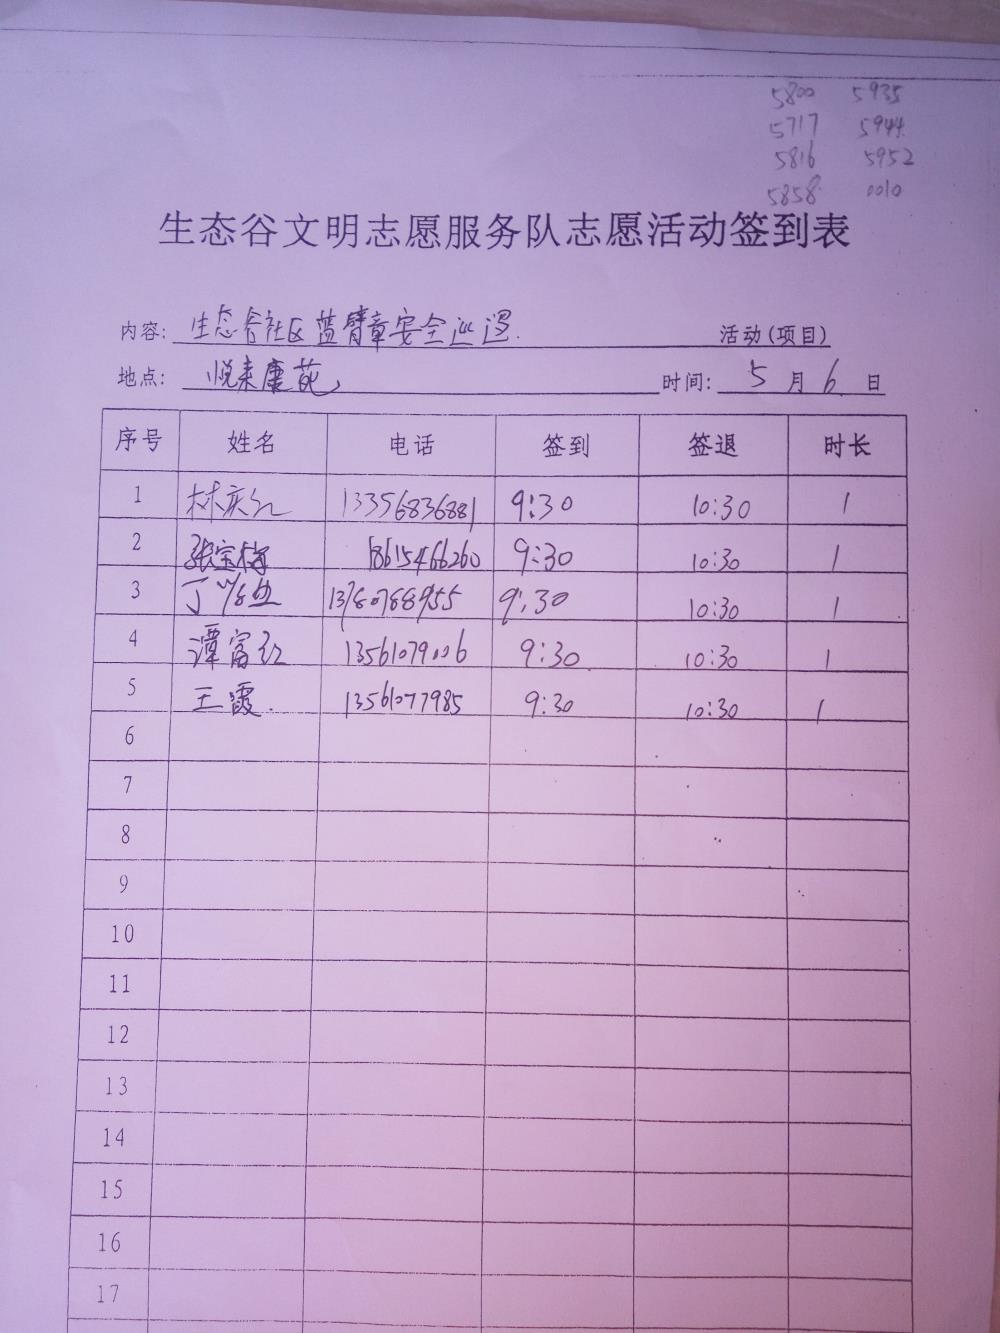 5800 5935
5717 5944
5816 5952
5858 0010
生态谷文明志愿服务队志愿活动签到表
内容: 生态谷社区蓝臂章安全巡逻. 活动(项目)
地点: 悦来康苑 时间: 5 月 6 日
序号 姓名 电话 签到 签退 时长
1 林庆红 13356836881 9:30 10:30 1
2 张宝梅 18615466260 9:30 10:30 1
3 丁 9:30 10:30 1
4 谭富红 13561079006 9:30 10:30 1
5 王霞. 13561077985 9:30 10:30 1
6
7
8
9
10
11
12
13
14
15
16
17